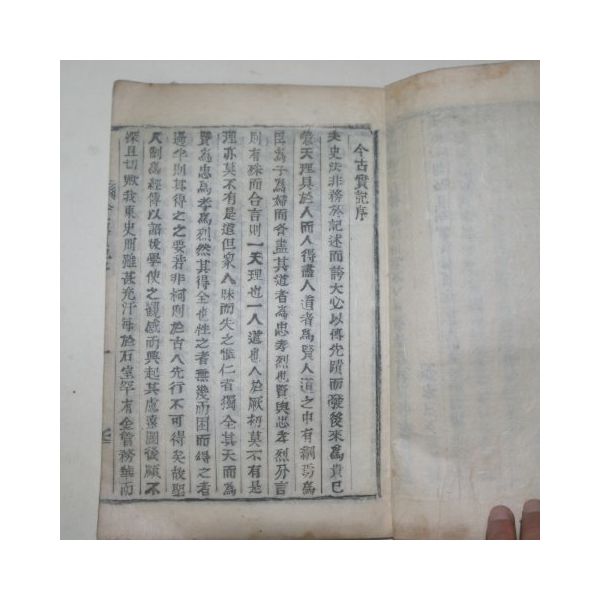 今古實記序
夫史法非務於記述而誇大必以傳先蹟而發後來爲貴已
蓋天理具於人而人得盡人道者爲賢人道之中有綱焉爲
臣爲子爲婦而各盡其道者爲忠孝烈也賢與忠孝烈分言
則有殊而合言則一天理也一人道也人於厥初莫不有是
理亦莫不有是道但衆人昧而失之惟仁者獨全其天而爲
賢爲忠爲孝爲烈然其得全也性之者無幾而因而得之者
過半則其得之之要若非柯則於古人先行不可得矣故聖
人制爲經傳以詔後學使之觀感而興起其慮遠圖後顧不
深且切歟我東史册雖甚充汗每於石室罕有